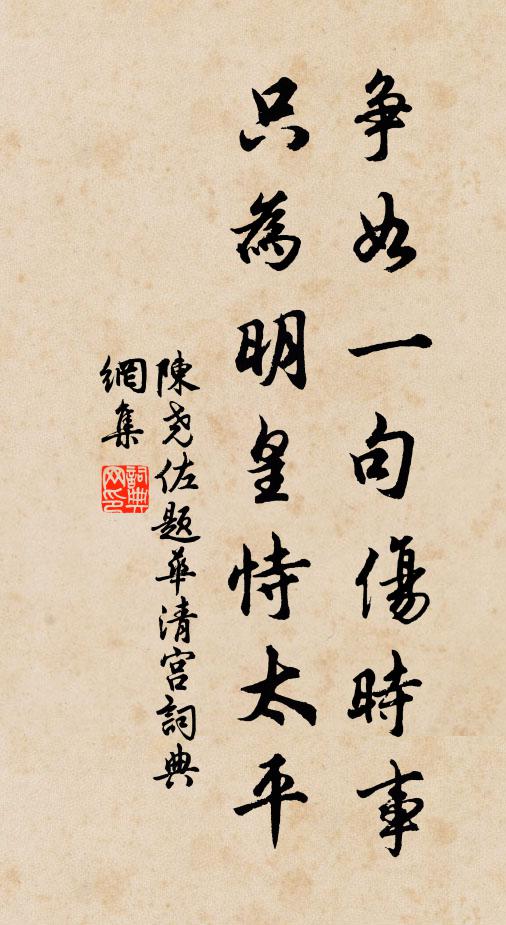 争如一句傷時事
只為明皇恃太平
陳尭佐題華清宮詞典
網集
詞典
网印